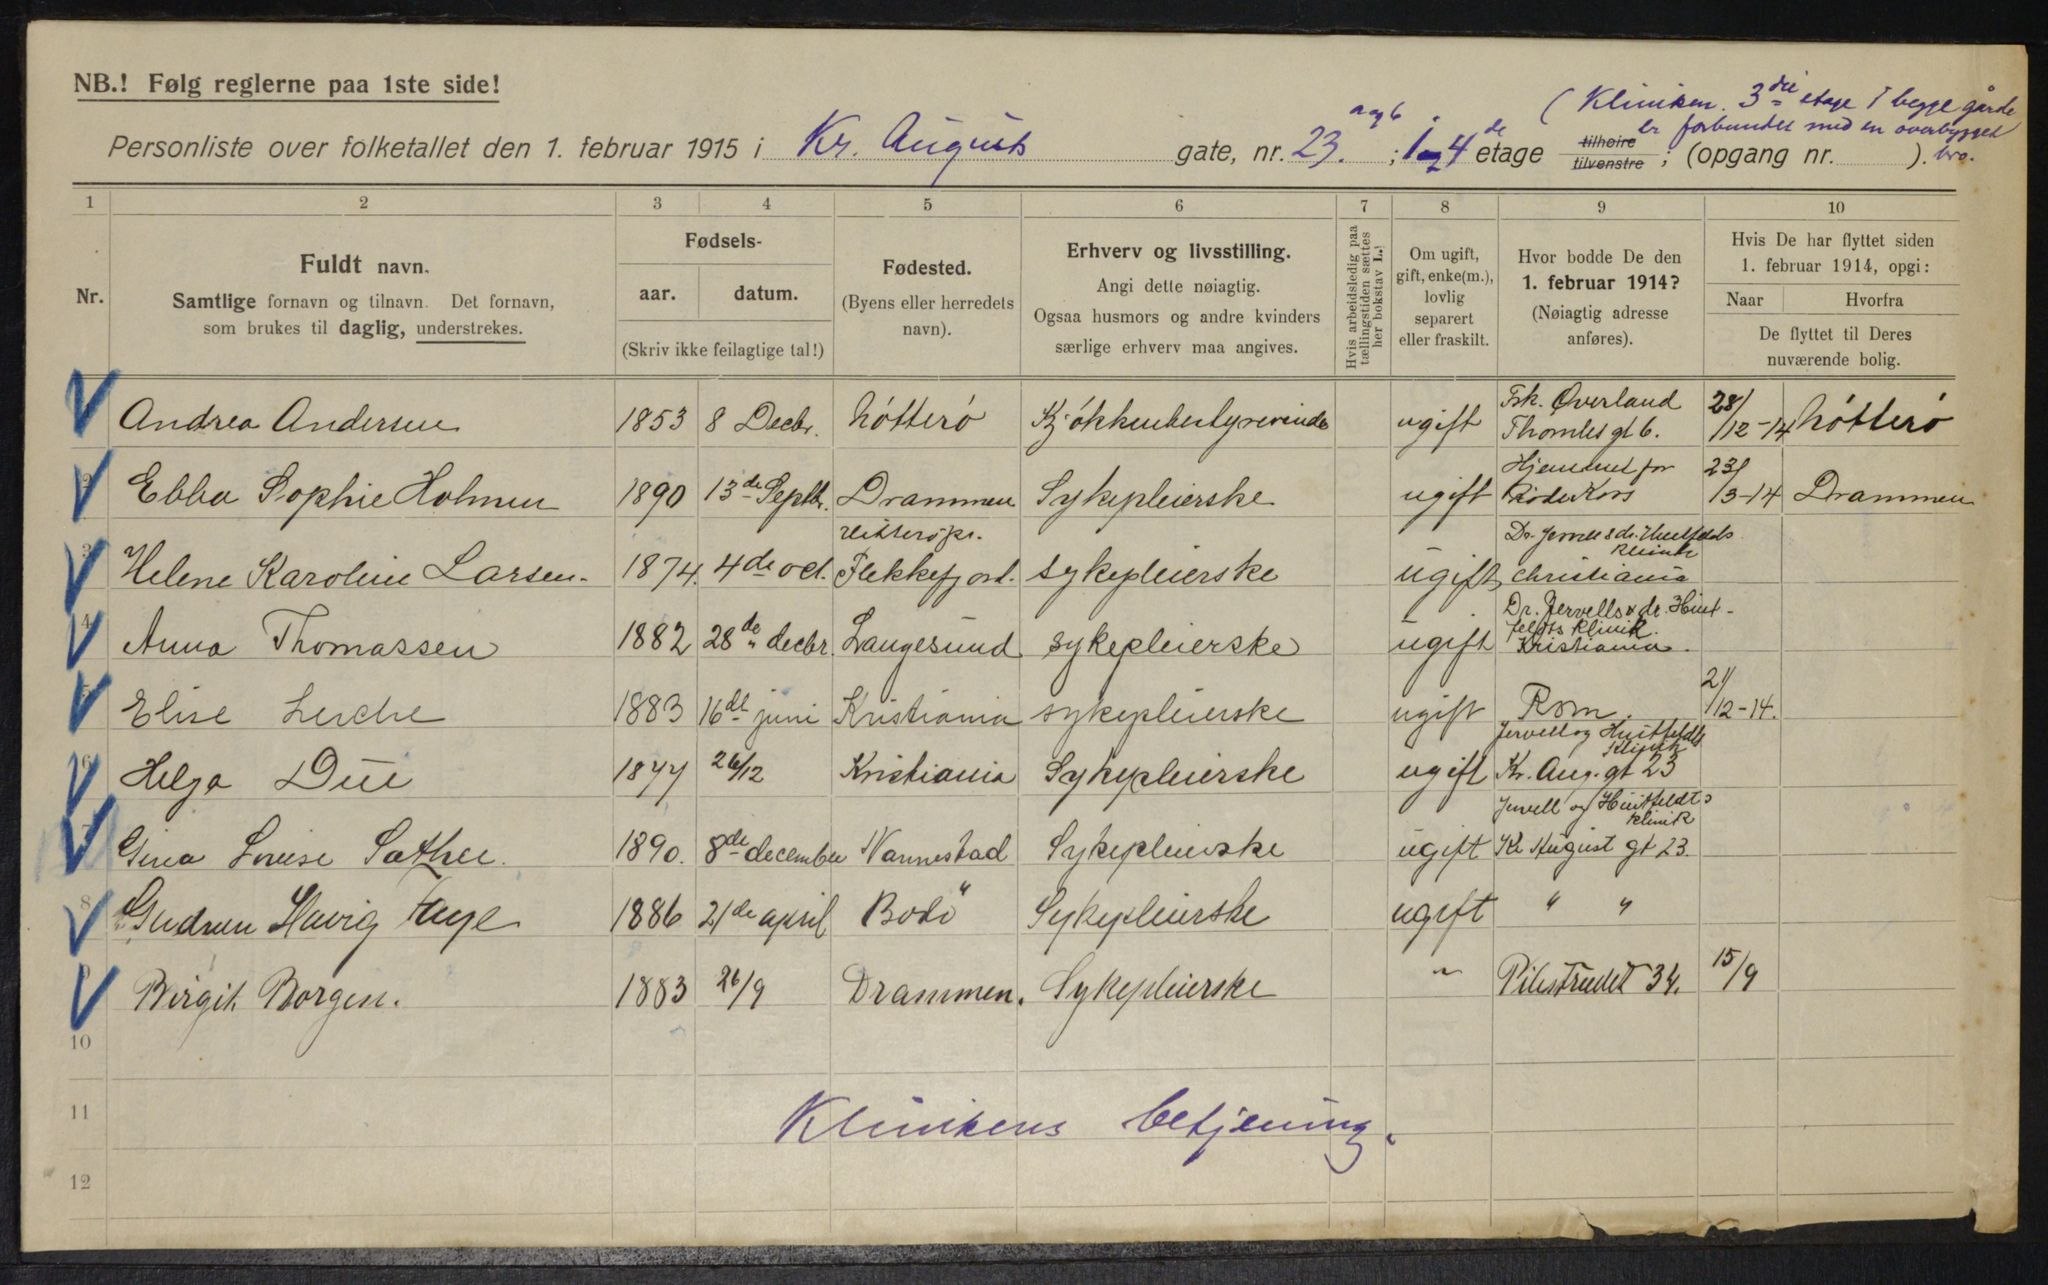 NB.! Følg reglerne paa 1ste side!
(Kliniken. 3die etage i begge gårde
er forbundet med en overbygget
bro.
Personliste over folketallet den 1. februar 1915 i Kr. Augusts gate, nr. 23. ; 1 og 4 de etage tilhøire tilvenstre ; (opgang nr. ).
1 2 3 4 5 6 7 8 9 10
Nr.
Fuldt navn.
Samtlige fornavn og tilnavn. Det fornavn,
som brukes til daglig, understrekes.
Fødsels-
aar. datum.
(Skriv ikke feilagtige tal!)
Fødested.
(Byens eller herredets
navn).
Erhverv og livsstilling.
Angi dette nøiagtig.
Ogsaa husmors og andre kvinders
særlige erhverv maa angives.
Hvis arbeidsledig paa
tællingstiden sættes
her bokstav L.!
Om ugift,
gift, enke(m.),
lovlig
separert
eller fraskilt.
Hvor bodde De den
1. februar 1914?
(Nøiagtig adresse
anføres).
Hvis De har flyttet siden
1. februar 1914, opgi:
Naar Hvorfra
De flyttet til Deres
nuværende bolig.
Andrea Andersen 1853 8 Decbr. Nótterö Kjókkenbestyrerinde ugift Frk. Øverland Thomles gt 6. 28/12-14 Nótterö
2 Ebba Sophie Holmen 1890 13de Septbr. Drammen Sykepleierske ugift Hjemmet for Röde Kors 23/3-14 Drammen
3 Helene Karoline Larsen. 1874. 4de oct. Flekkefjord. sykepleierske ugift Klinik Christiania
4 Anna Thomassen 1882 28de decbr. Langesund sykepleierske ugift Dr. Jervells & dr. Huitfeldts Klinik. Kristiania.
5 Elise Lerche 1883 16de juni Kristiania sykepleierske ugift Rom. 21/12-14.
6 Helga Due 1877 26/12 Kristiania Sykepleierske ugift Jervell og Huitfeldts Klinik Kr. Aug. gt 23
7 Gina Louise Sæther. 1890. 8de december Nannestad Sykepleierske ugift Jervell og Huitfeldts Klinik Kr August gt 23.
8 Gudrun Hauge 1886 21de april Bodö Sykepleierske ugift " "
9 Birgit Borgen. 1883 26/9 Drammen. Sykepleierske " Pilestrædet 34. 15/9
10
11 Klinikens betjening.
12